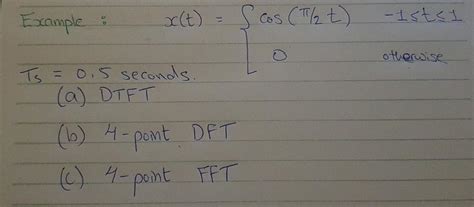 Example : x(t) = { cos (π/2 t) -1≤t≤1
0 otherwise
Ts = 0.5 seconds.
(a) DTFT
(b) 4-point DFT
(c) 4-point FFT